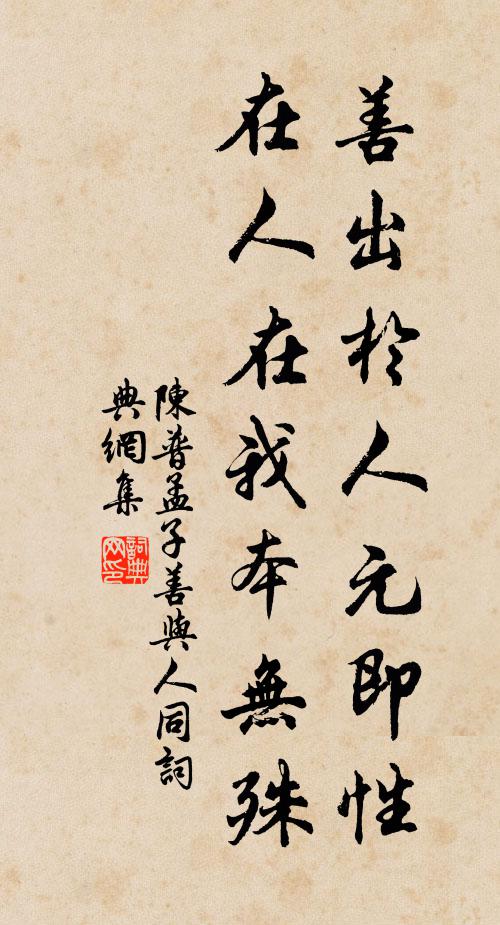 善出於人元即性
在人在我本無殊
陳普孟子善與人同詞
典網集
詞典網印